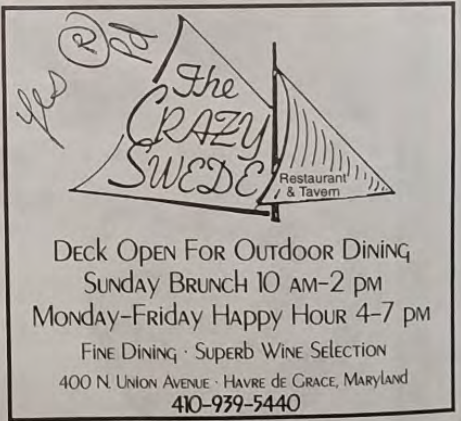 yes R pd
The
CRAZY
SWEDE
Restaurant
& Tavern
DECK OPEN FOR OUTDOOR DINING
SUNDAY BRUNCH 10 AM-2 PM
MONDAY-FRIDAY HAPPY HOUR 4-7 PM
FINE DINING · SUPERB WINE SELECTION
400 N. UNION AVENUE · HAVRE de GRACE, MARYLAND
410-939-5440